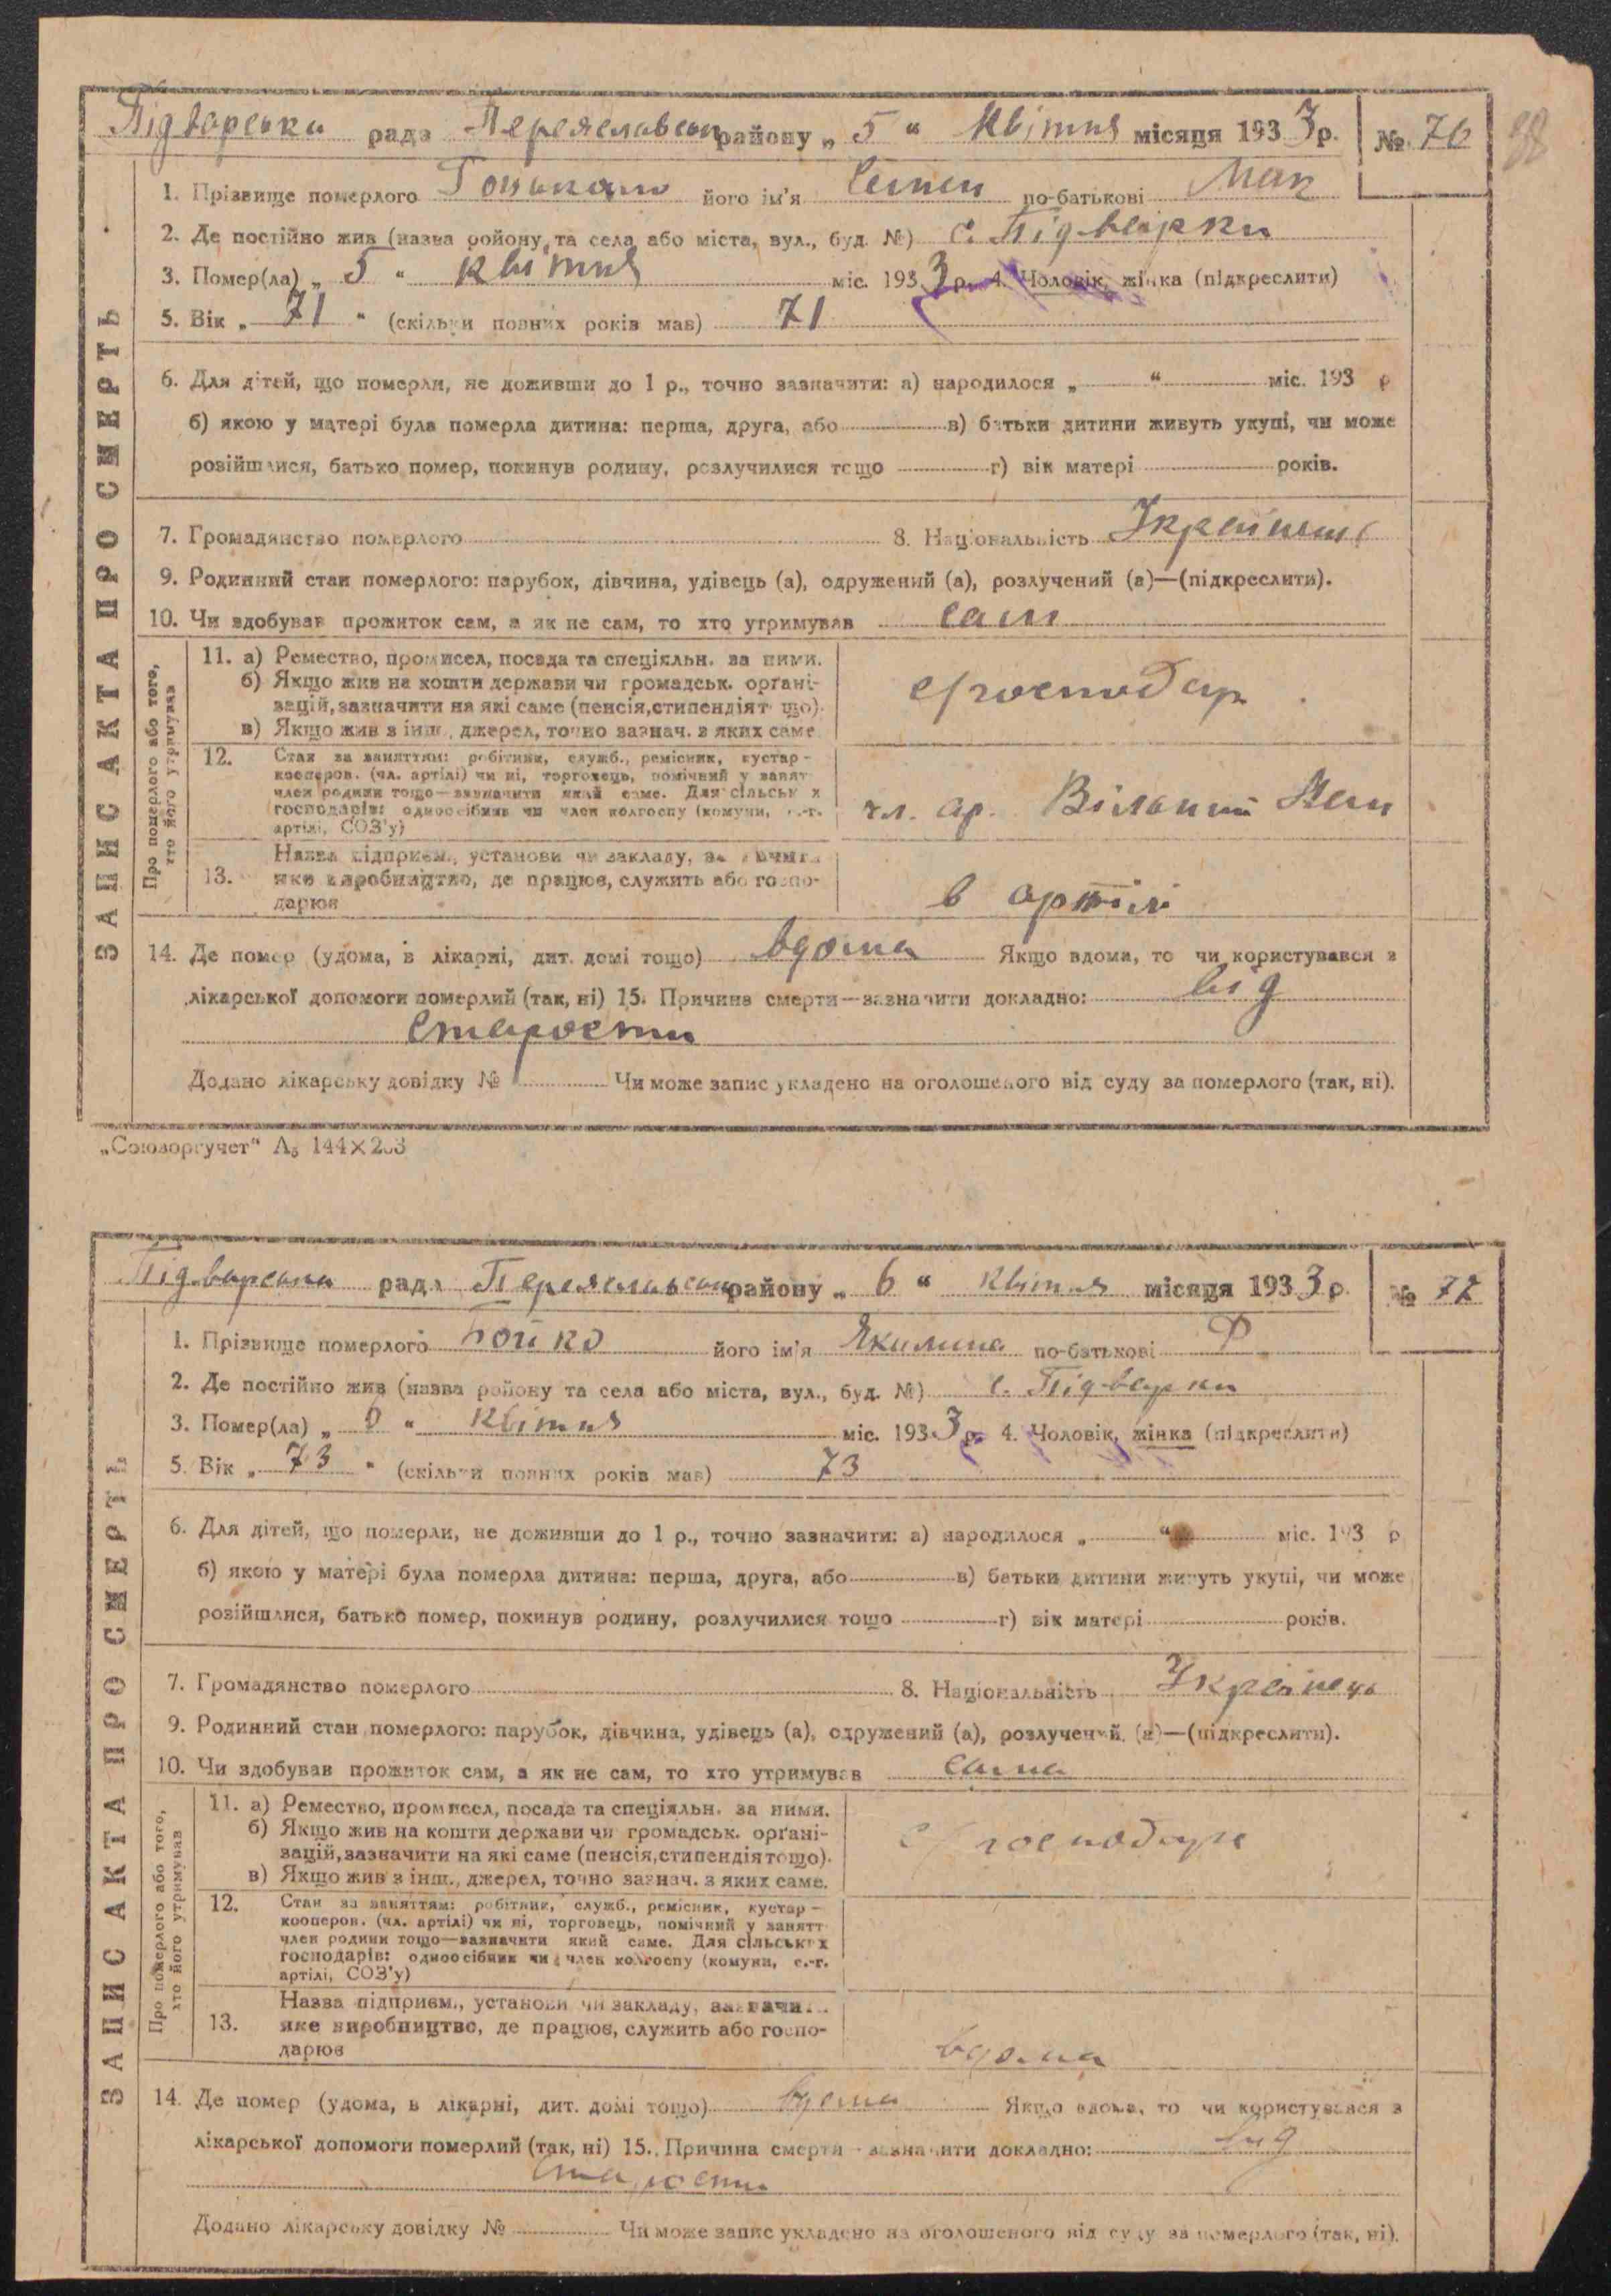 Підварська рада Переяславськ району „ 5 “ Квітня місяця 1933 р. № 76
1. Прізвище померлого його ім'я Семен по-батькові Мак
2. Де постійно жив (назва ройону та села або міста, вул., буд. №) с. Підварки
3. Помер(ла) „ 5 “ Квітня міс. 1933 р. 4. Чоловік, жінка (підкреслити)
5. Вік „ 71 “ (скільки повних років мав) 71
6. Для дітей, що померли, не доживши до 1 р., точно зазначити: а) народилося „ “ міс. 193 р
б) якою у матері була померла дитина: перша, друга, або в) батьки дитини живуть укупі, чи може
розійшлися, батько помер, покинув родину, розлучилися тощо г) вік матері років.
7. Громадянство померлого 8. Національність Українець
9. Родинний стан померлого: парубок, дівчина, удівець (а), одружений (а), розлучений (а)—(підкреслити).
10. Чи здобував прожиток сам, а як не сам, то хто утримував сам
ЗАПИС АКТА ПРО СМЕРТЬ
Про померлого або того, хто його утримував
11. а) Ремество, промисел, посада та спеціяльн. за ними.
б) Якщо жив на кошти держави чи громадськ. органі-
зацій, зазначити на які саме (пенсія, стипендія т що).
в) Якщо жив з інш., джерел, точно зазнач. з яких саме
с/господар
12. Стан за заняттям: робітник, служб., ремісник, кустар-
кооперов. (чл. артілі) чи ні, торговець, помічний у занят
член родини тощо—зазначити який саме. Для сільськ х
господарів: одноосібник чи член колгоспу (комуни, с.-г.
артілі, СОЗ'у)
чл. ар. Вільний Степ
Назва підприєм., установи чи закладу,
13. яке виробництво, де працює, служить або госпо-
дарює
в артілі
14. Де помер (удома, в лікарні, дит. домі тощо) вдома Якщо вдома, то чи користувався з
лікарської допомоги померлий (так, ні) 15. Причина смерти—зазначити докладно: від
старости
Додано лікарську довідку № Чи може запис укладено на оголошеного від суду за померлого (так, ні).
„Союзоргучет“ А5 144×203
Підварська рада Переяславськ району „ 6 “ Квітня місяця 1933 р. № 77
1. Прізвище померлого Бойко його ім'я Якилина по-батькові Ф
2. Де постійно жив (назва ройону та села або міста, вул., буд. №) с. Підварки
3. Помер(ла) „ 6 “ Квітня міс. 1933 р. 4. Чоловік, жінка (підкреслити)
5. Вік „ 73 “ (скільки повних років мав) 73
6. Для дітей, що померли, не доживши до 1 р., точно зазначити: а) народилося „ “ міс. 193 р
б) якою у матері була померла дитина: перша, друга, або в) батьки дитини живуть укупі, чи може
розійшлися, батько помер, покинув родину, розлучилися тощо г) вік матері років.
7. Громадянство померлого 8. Національність Українець
9. Родинний стан померлого: парубок, дівчина, удівець (а), одружений (а), розлучений (а)—(підкреслити).
10. Чи здобував прожиток сам, а як не сам, то хто утримував сама
ЗАПИС АКТА ПРО СМЕРТЬ
Про померлого або того, хто його утримував
11. а) Ремество, промисел, посада та спеціяльн. за ними.
б) Якщо жив на кошти держави чи громадськ. органі-
зацій, зазначити на які саме (пенсія, стипендія тощо).
в) Якщо жив з інш., джерел, точно зазнач. з яких саме.
с/господар
12. Стан за заняттям: робітник, служб., ремісник, кустар-
кооперов. (чл. артілі) чи ні, торговець, помічний у занятт
член родини тощо—зазначити який саме. Для сільських
господарів: одноосібник чи член колгоспу (комуни, с.-г.
артілі, СОЗ'у)
Назва підприєм., установи чи закладу,
13. яке виробництво, де працює, служить або госпо-
дарює
вдома
14. Де помер (удома, в лікарні, дит. домі тощо) вдома Якщо вдома, то чи користувався з
лікарської допомоги померлий (так, ні) 15. Причина смерти—зазначити докладно: від
старости
Додано лікарську довідку № Чи може запис укладено на оголошеного від суду за померлого (так, ні).